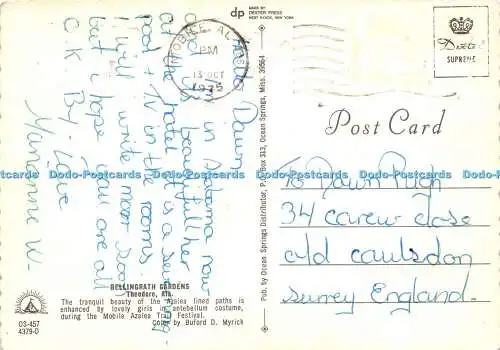 dp
MADE BY
DEXTER PRESS
WEST NYACK, NEW YORK
MOBILE, ALA
PM
13 OCT
1975
SUPREME
Hello Dawn
and I'm in Alabama now
at the hotel it is a swimming
pool + TV in the rooms
I will write more soon
but i hope you all are all
O.K. By. Love
Marianne W-
BELLINGRATH GARDENS
Theodore, Ala.
The tranquil beauty of the Azalea lined paths is
enhanced by lovely girls in antebellum costume,
during the Mobile Azalea Trail Festival.
Color by Buford D. Myrick
OS-457
4379-D
Pub. by Ocean Springs Distributor, P. O. Box 313, Ocean Springs, Miss. 39564
Post Card
To Dawn Pugh
34 carew close
old caulsdon
surrey England.
Postcards
www.id-Postcards
www.id-Postcards
www.id-Postcards